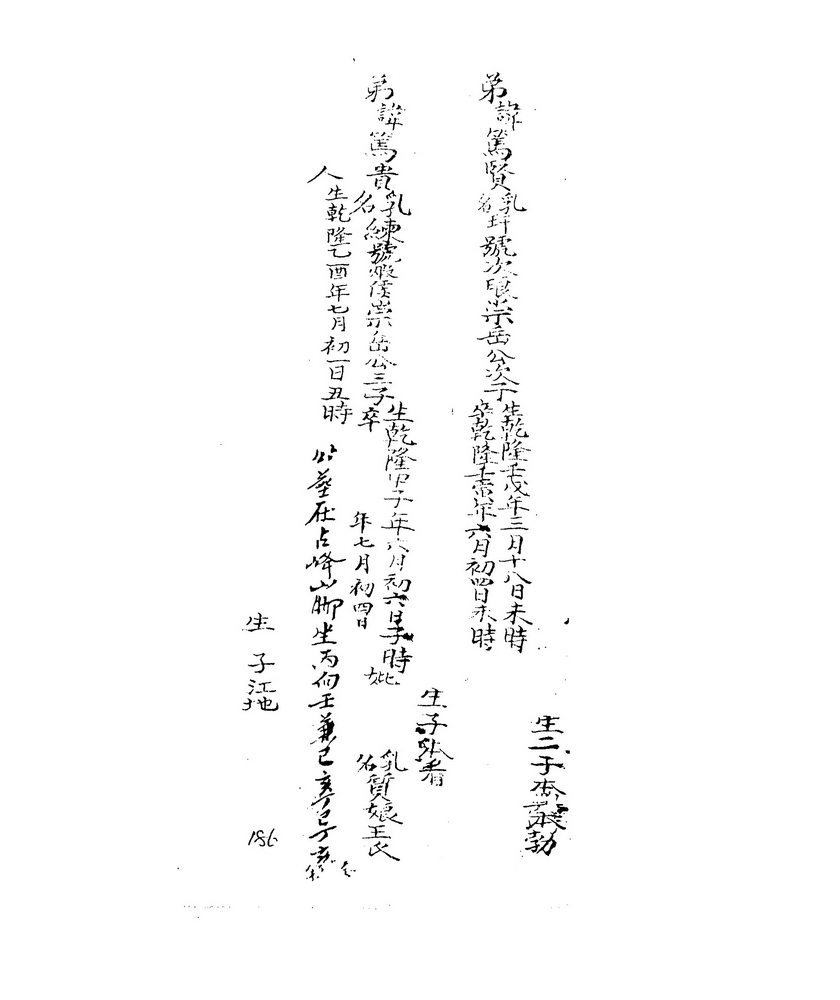 弟諱篤賢乳名玕號次琅崇岳公次子
生乾隆壬戌年三月十八日未時
卒乾隆壬寅年六月初四日未時
生二子
勃
弟諱篤貴乳名練號 崇岳公三子
生乾隆甲子年六月初六日子時
卒 年七月初四日
生子 看
妣 乳名質娘王氏
人生乾隆乙酉年七月初一日丑時
墓在占峰山脚坐丙向壬兼巳亥丁巳丁亥
生子江地
186